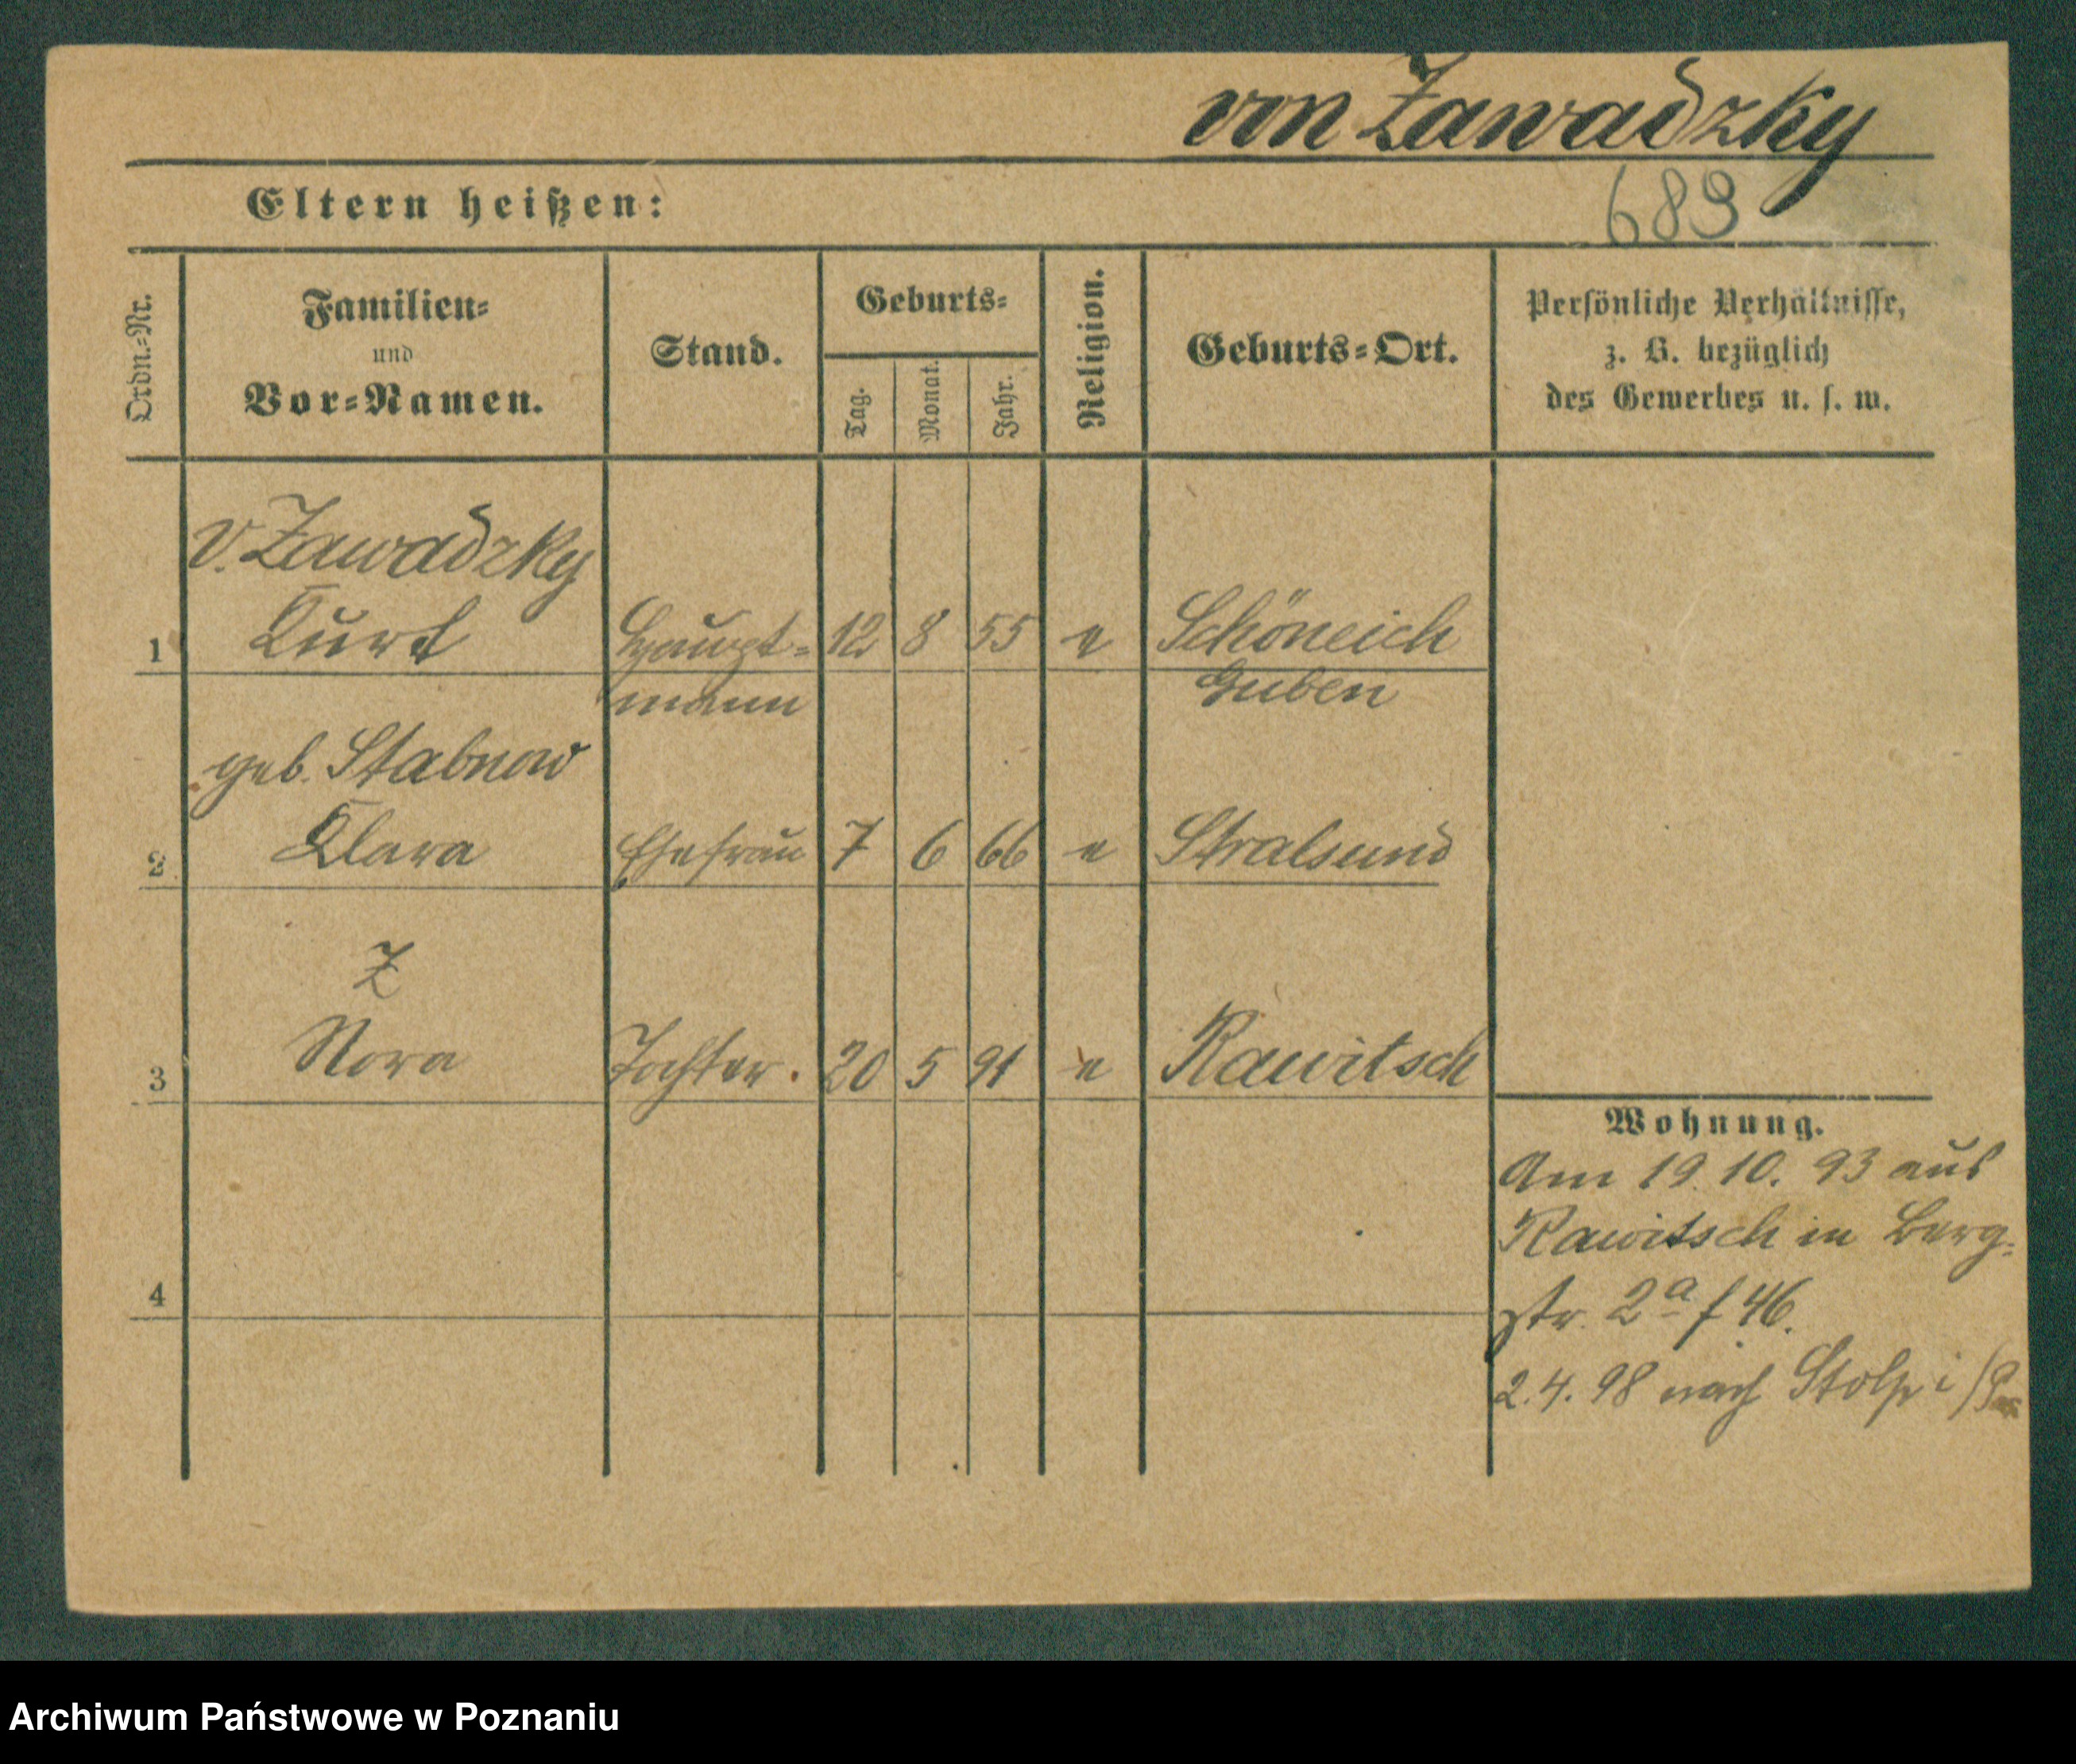 von Zawadzky
Eltern heißen:
689
Ordn.-Nr.
Familien-
und
Vor-Namen.
Stand.
Geburts-
Tag.
Monat.
Jahr.
Religion.
Geburts-Ort.
Persönliche Verhältnisse,
z. B. bezüglich
des Gewerbes u. s. w.
v. Zawadzky
1 Kurt Haupt- 12 8 55 e Schöneich
mann Guben
geb. Stabnow
2 Klara Ehefrau 7 6 66 e Stralsund
Z
3 Nora Tochter. 20 5 91 e Rawitsch
Wohnung.
Am 19.10.93 aus
Rawitsch in Berg-
4
str. 2a f 46.
2.4.98 nach Stolp i/P
Archiwum Państwowe w Poznaniu